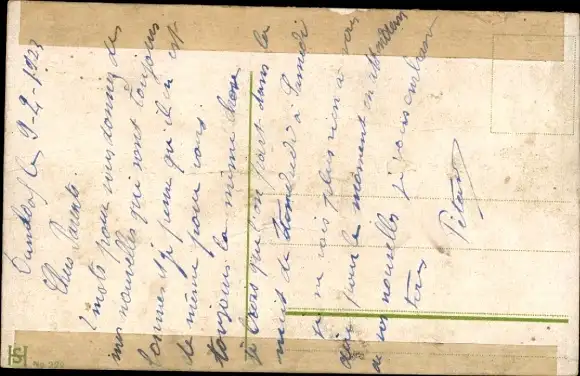 le 9-2-1923
Chers Parents
2 mots pour vous donner de
mes nouvelles qui sont toujours
bonnes et je pense qu'il n est
de même pour vous
toujours la même chose
je crois qu'on part dans la
nuit de vendredi à Samedi
je ne vois plus rien a vous
dire pour le moment en attendant
de vos nouvelles je vous embrasse
tous
HS